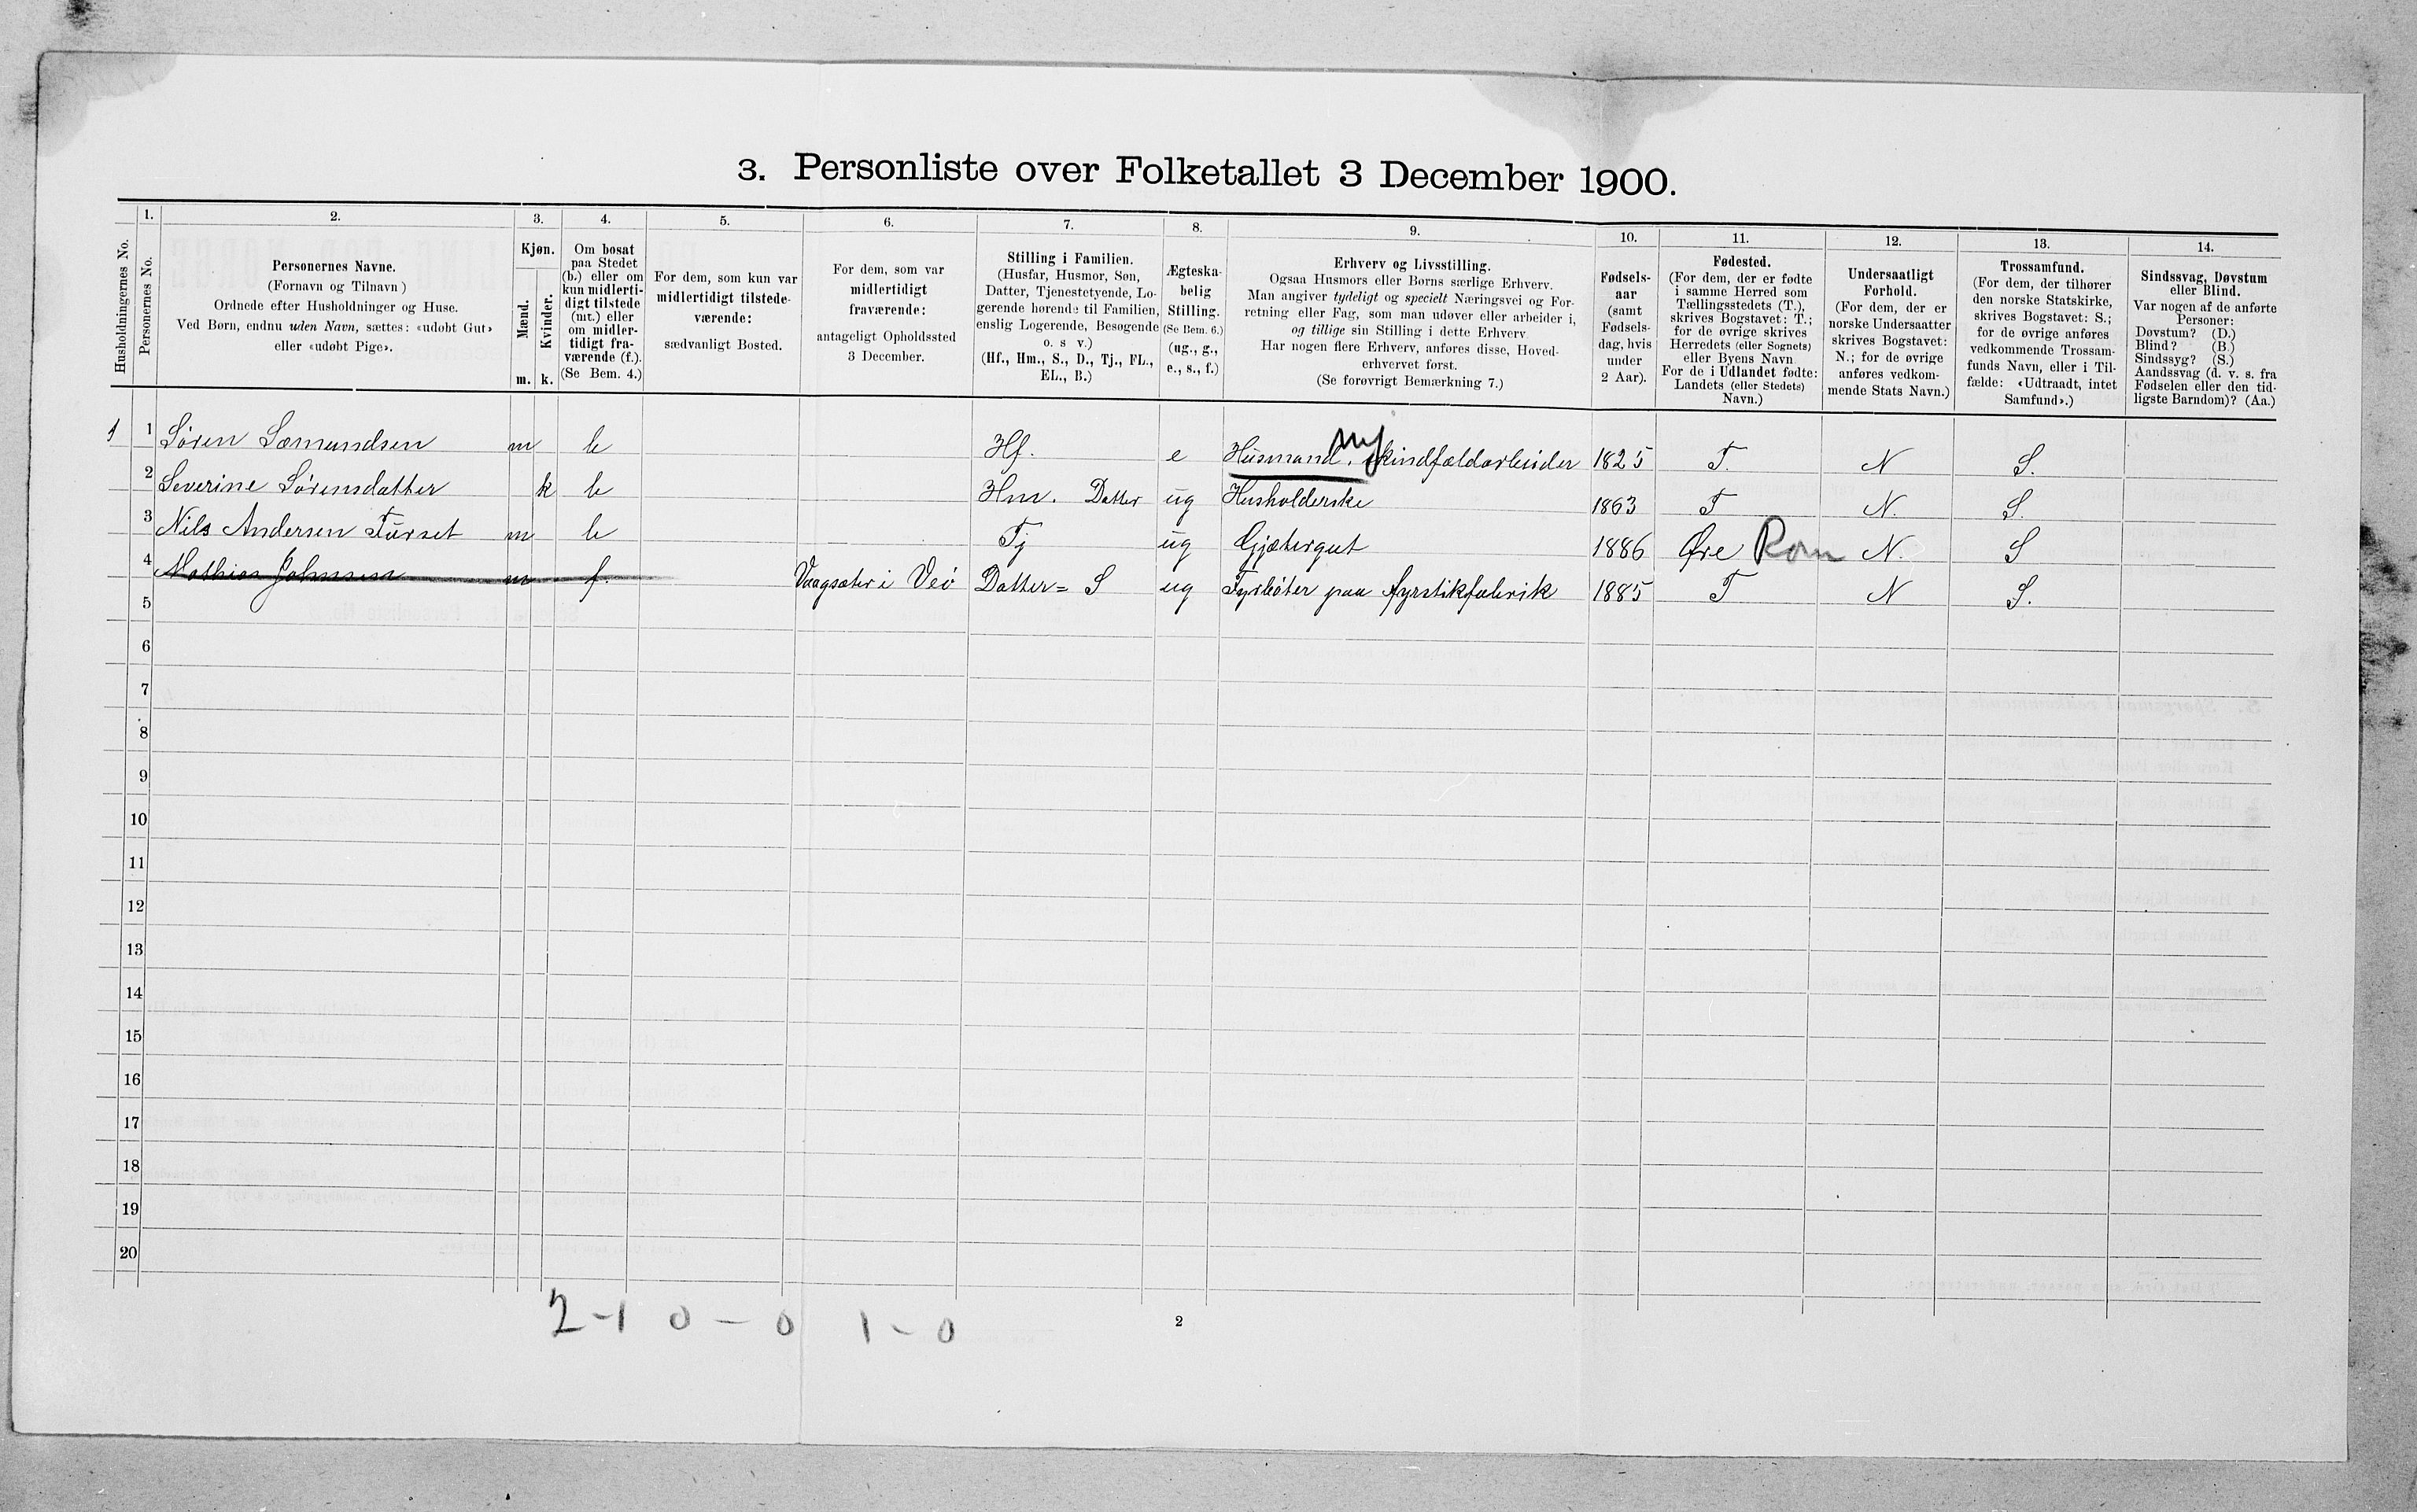 3. Personliste over Folketallet 3 December 1900.
Husholdningernes No.
1.
Personernes No.
2.
Personernes Navne.
(Fornavn og Tilnavn)
Ordnede efter Husholdninger og Huse.
Ved Børn, endnu uden Navn, sættes: «udøbt Gut»
eller «udøbt Pige».
3.
Kjøn.
Mænd.
Kvinder.
m. k.
4.
Om bosat
paa Stedet
(b.) eller om
kun midlerti-
digt tilstede
(mt.) eller
om midler-
tidigt fra-
værende (f.).
(Se Bem. 4.)
5.
For dem, som kun var
midlertidigt tilstede-
værende:
sædvanligt Bosted.
6.
For dem, som var
midlertidigt
fraværende:
antageligt Opholdssted
3 December.
7.
Stilling i Familien.
(Husfar, Husmor, Søn,
Datter, Tjenestetyende, Lo-
gerende hørende til Familien,
enslig Logerende, Besøgende
o. s v.)
(Hf., Hm., S., D., Tj., FL.,
EL., B.)
8.
Ægteska-
belig
Stilling.
(Se Bem. 6.)
(ug., g.,
e., s., f.)
9.
Erhverv og Livsstilling.
Ogsaa Husmors eller Børns særlige Erhverv.
Man angiver tydeligt og specielt Næringsvei og For-
retning eller Fag, som man udøver eller arbeider i,
og tillige sin Stilling i dette Erhverv.
Har nogen flere Erhverv, anføres disse, Hoved-
erhvervet først.
(Se forøvrigt Bemærkning 7.)
10.
Fødsels-
aar
(samt
Fødsels-
dag, hvis
under
2 Aar).
11.
Fødested.
(For dem, der er fødte
i samme Herred som
Tællingsstedets (T.),
skrives Bogstavet: T.;
for de øvrige skrives
Herredets (eller Sognets)
eller Byens Navn
For de i Udlandet fødte:
Landets (eller Stedets)
Navn.)
12.
Undersaatligt
Forhold.
(For dem, der er
norske Undersaatter
skrives Bogstavet:
N.; for de øvrige
anføres vedkom-
mende Stats Navn.)
13.
Trossamfund.
(For dem, der tilhører
den norske Statskirke,
skrives Bogstavet: S.;
for de øvrige anføres
vedkommende Trossam-
funds Navn, eller i Til-
fælde: «Udtraadt, intet
Samfund».)
14.
Sindssvag, Døvstum
eller Blind.
Var nogen af de anførte
Personer:
Døvstum? (D.)
Blind? (B.)
Sindssyg? (S.)
Aandssvag (d. v. s. fra
Fødselen eller den tid-
ligste Barndom)? (Aa.)
1 1 Søren Sæmundsen m b Hf. e Husmand. Skindfældarbeider 1825 T. N S.
2 Severine Sørensdatter k b Hm. Datter ug Husholderske 1863 T N. S.
3 Nils Andersen Furset m b Tj ug Gjætergut 1886 Øre Rom N. S
4 Mathias Johnsen m f. Vaagsæter i Veø Datter= S ug Fyrbøter paa fyrstikfabrik 1885 T N S.
5
6
7
8
9
10
11
12
13
14
15
16
17
18
19
20
2-1 0-0 1-0
2